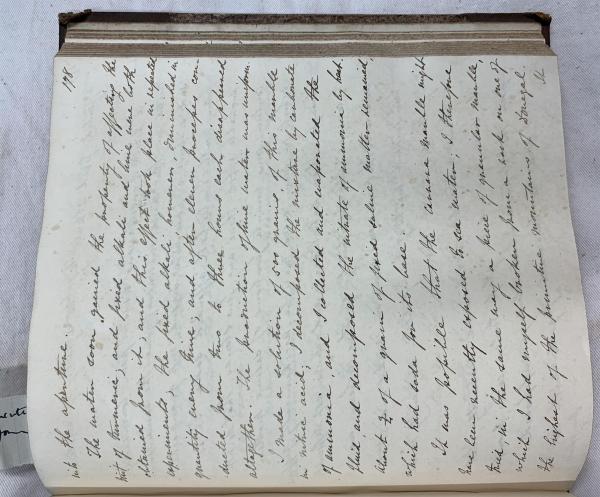 178
into the aperture.
The water soon gained the property of affecting the
tint of turmeric, and fixed alkali and lime were both
obtained from it, and this effect took place in repeated
experiments, the fixed alkali however, diminished in
quantity every time, and after eleven processes con-
ducted from two to three hours each disappeared
altogether. The production of lime water was uniform.
I made a solution of 500 grains of this marble
in nitric acid, I decomposed the mixture by carbonate
of ammonia and I collected and evaporated the
fluid and decomposed the nitrate of ammonia by heat
about ¾ of a grain of fixed saline matter remained,
which had soda for its base.
It was possible that the carrara marble might
have been recently exposed to sea water; I therefore
tried, in the same way a piece of granular marble,
which I had myself broken from a rock on one of
the highest of the primitive mountains of Donegal.